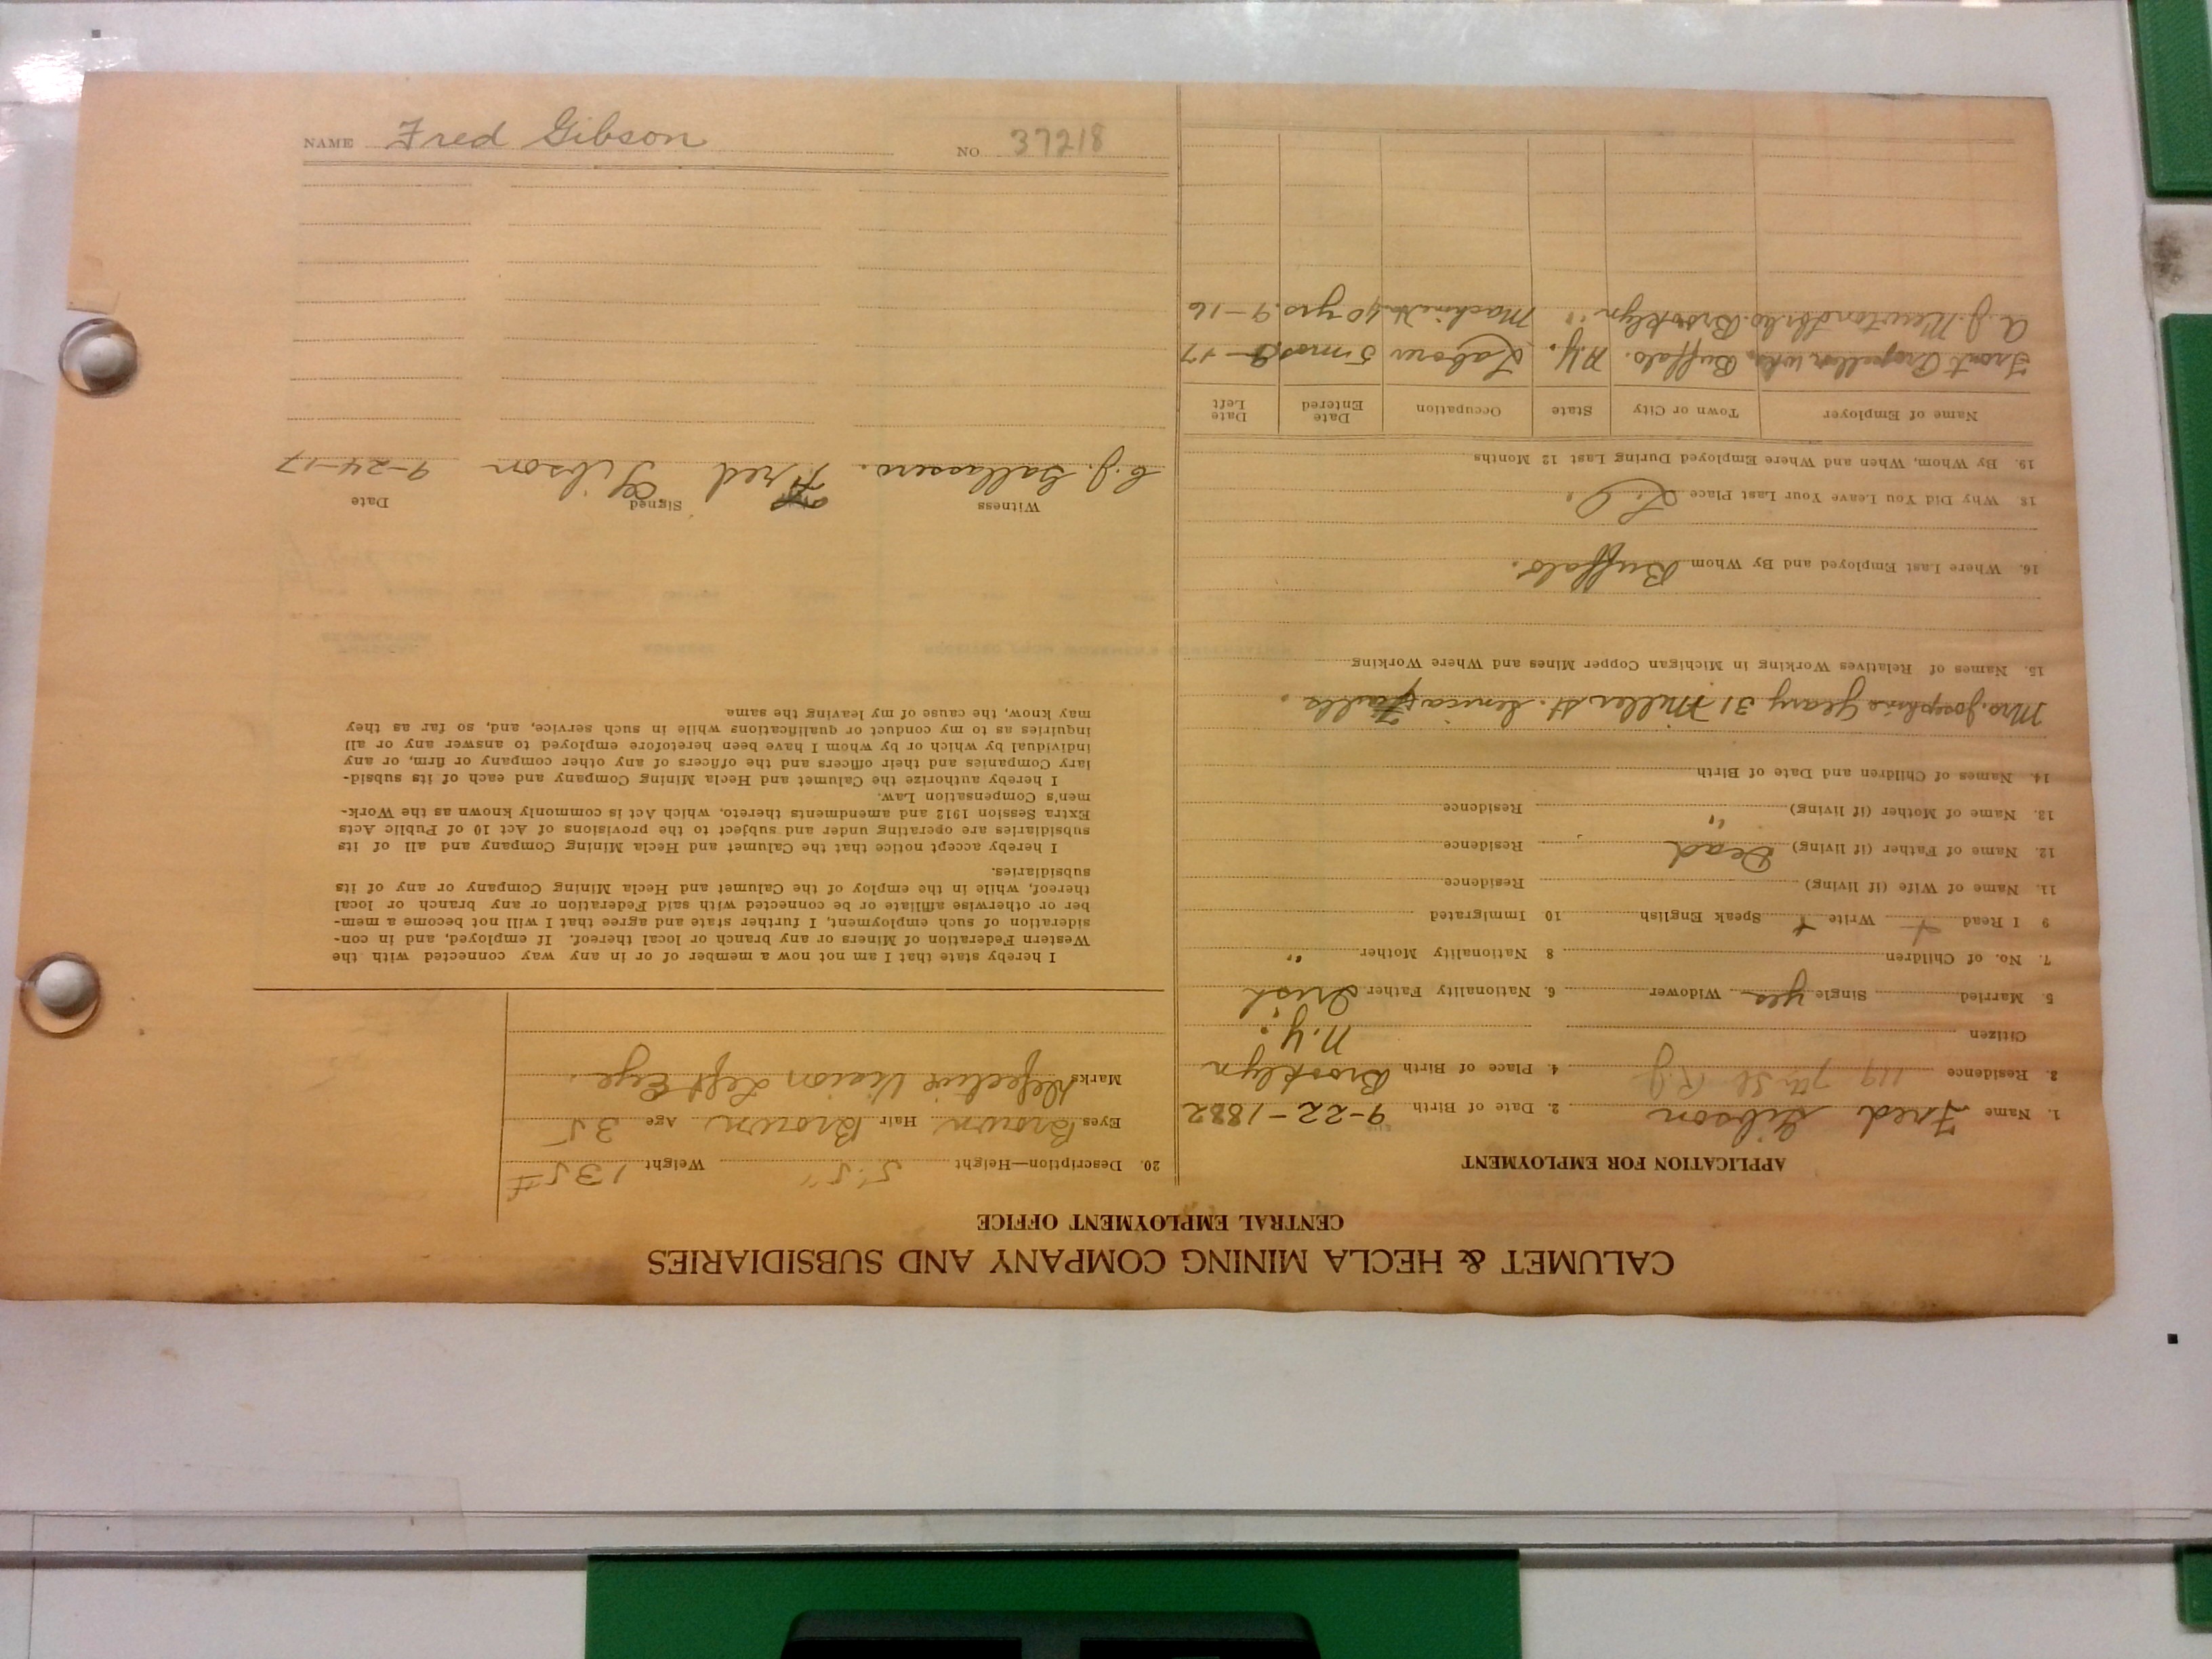 CALUMET & HECLA MINING COMPANY AND SUBSIDIARIES
CENTRAL EMPLOYMENT OFFICE
APPLICATION FOR EMPLOYMENT
1. Name Fred Gibson 2. Date of Birth 9-22-1882
3. Residence 119 7th St R.J. 4. Place of Birth Brooklyn
Citizen N.Y.
5. Married Single yes Widower 6. Nationality Father Irish
7. No. of Children 8 Nationality Mother "
9 I Read + Write + Speak English 10 Immigrated
11. Name of Wife (if living) Residence
12. Name of Father (if living) Dead Residence
13. Name of Mother (if living) " Residence
14. Names of Children and Date of Birth
Mrs. Josephine Geary 31 Miller St. Senica Faulls.
15. Names of Relatives Working in Michigan Copper Mines and Where Working
16. Where Last Employed and By Whom Buffalo.
18 Why Did You Leave Your Last Place
19. By Whom, When and Where Employed During Last 12 Months
Name of Employer Town or City State Occupation Date Entered Date Left
Propeller Wks. Buffalo. N.Y. Laborer 5 mos. 9-17
A.J. Brooklyn " Machinist 10 yrs. 9-16
20. Description—Height 5'5" Weight 135#
Eyes Brown Hair Brown Age 35
Marks Defective Vision Left Eye.
I hereby state that I am not now a member of or in any way connected with the
Western Federation of Miners or any branch or local thereof. If employed, and in con-
sideration of such employment, I further state and agree that I will not become a mem-
ber or otherwise affiliate or be connected with said Federation or any branch or local
thereof, while in the employ of the Calumet and Hecla Mining Company or any of its
subsidiaries.
I hereby accept notice that the Calumet and Hecla Mining Company and all of its
subsidiaries are operating under and subject to the provisions of Act 10 of Public Acts
Extra Session 1912 and amendments thereto, which Act is commonly known as the Work-
men's Compensation Law.
I hereby authorize the Calumet and Hecla Mining Company and each of its subsid-
iary Companies and their officers and the officers of any other company or firm, or any
individual by which or by whom I have been heretofore employed to answer any or all
inquiries as to my conduct or qualifications while in such service, and, so far as they
may know, the cause of my leaving the same
Witness Signed Date
C.J. Fred Gibson 9-24-17
NAME Fred Gibson NO 37218